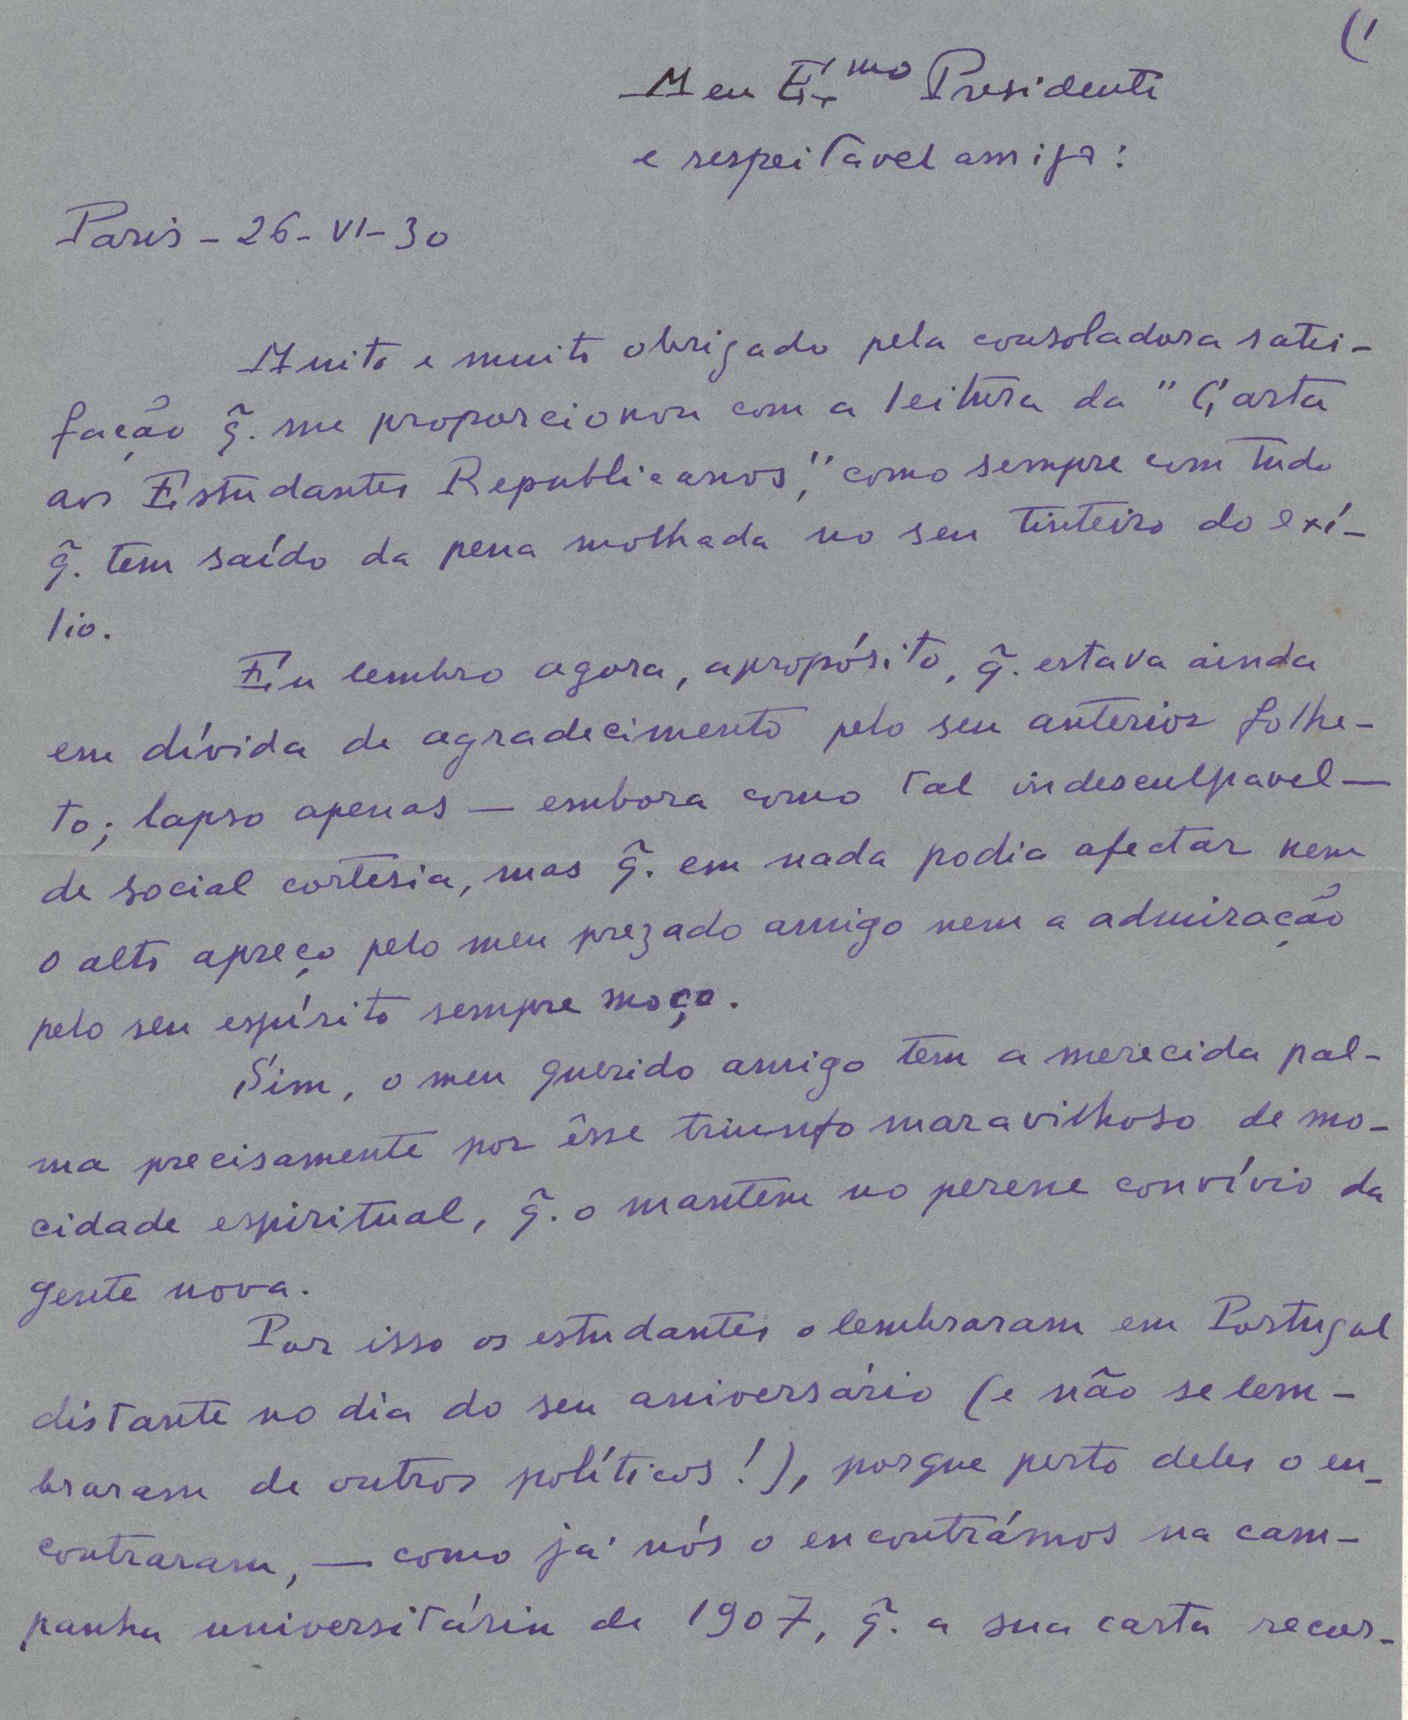 (1
Meu Ex.mo Presidente
e respeitavel amigo:
Paris - 26 - VI - 30
Muito e muito obrigado pela consoladora satis-
fação q̃. me proporcionou com a leitura da "Carta
aos Estudantes Republicanos", como sempre com tudo
q̃. tem saído da pena molhada no seu tinteiro do exí-
lio.
Eu lembro agora, apropósito, q̃. estava ainda
em dívida de agradecimento pelo seu anterior folhe-
to; lapso apenas — embora como tal indesculpavel —
de social cortesia, mas q̃. em nada podia afectar nem
o alto apreço pelo meu prezado amigo nem a admiração
pelo seu espírito sempre moço.
Sim, o meu querido amigo tem a merecida pal-
ma precisamente por êsse triunfo maravilhoso de mo-
cidade espiritual, q̃. o mantem no perene convívio da
gente nova.
Por isso os estudantes o lembraram em Portugal
distante no dia do seu aniversário (e não se lem-
braram de outros políticos!), porque perto deles o en-
contraram, — como já nós o encontrámos na cam-
panha universitária de 1907, q̃. a sua carta recor-